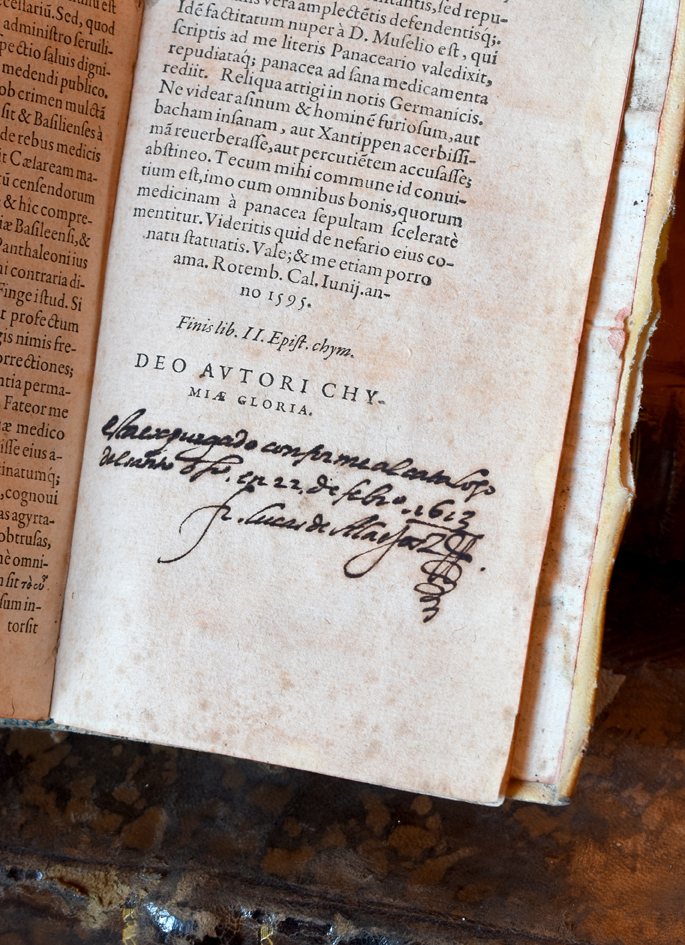 ñu est
cessariũ. Sed, quod
administro seruili-
pectio saluis digni-
medendi publico.
ob crimen mulctâ
sit & Basilienses à
de rebus medicis
it Cæsaream ma-
tũ censendorum
& hic compre-
iæ Basileensi, &
Panthaleoni ius
ni contraria di-
Finge istud. Si
r profectum
gis nimis fre-
orrectiones;
ntia perma-
Fateor me
uæ medico
isse eius a-
cinatumq́;
, cognoui
as agyrta-
obtrusas,
nè omni-
n sit τὸ οὗ
sum in-
torsit
vera amplectẽtis defendentisq́;.
Idẽ factitatum nuper à D. Muselio est, qui
scriptis ad me literis Panaceario valedixit,
repudiataq́; panacea ad sana medicamenta
rediit. Reliqua attigi in notis Germanicis.
Ne videar asinum & hominẽ furiosum, aut
bacham insanam, aut Xantippen acerbissi-
mã reuerberasse, aut percutiẽtem accusasse;
abstineo. Tecum mihi commune id conui-
tium est, imo cum omnibus bonis, quorum
medicinam à panacea sepultam sceleratè
mentitur. Videritis quid de nefario eius co-
natu statuatis. Vale; & me etiam porro
ama. Rotemb. Cal. Iunij. an-
no 1595.
Finis lib. II. Epist. chym.
DEO AVTORI CHY-
MIÆ GLORIA.
esta expurgado conforme al catalogo
del santo Offo. en 22 de febro. 1613
fr. lucas de